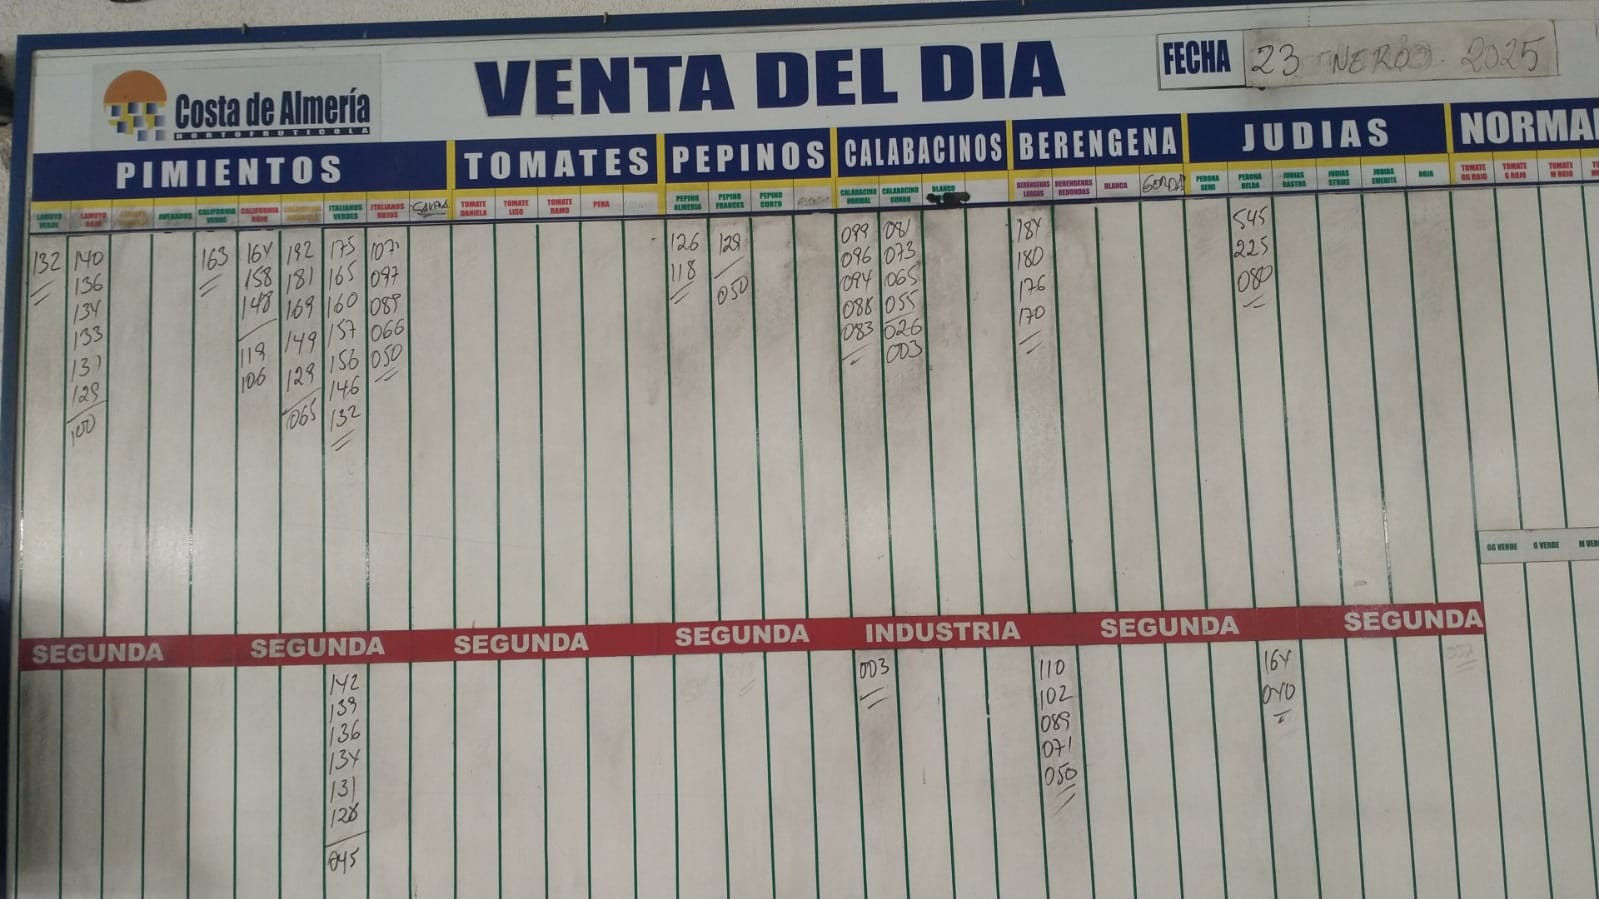 Costa de Almería
HORTOFRUTICOLA
VENTA DEL DIA
FECHA 23 ENERO. 2025
PIMIENTOS TOMATES PEPINOS CALABACINOS BERENGENA JUDIAS NORMA
LAMUYO VERDE
LAMUYO ROJO
CALIFORNIA VERDE
CALIFORNIA ROJO
ITALIANOS VERDES
ITALIANOS ROJOS
TOMATE DANIELA
TOMATE LISO
TOMATE RAMO
PERA
PEPINO ALMERIA
PEPINO FRANCES
PEPINO CORTO
CALABACINO NORMAL
CALABACINO GORDO
BLANCO
BERENGENAS LARGAS
BERENGENAS REDONDAS
BLANCA
GORDA
PERONA SEMI
PERONA HELDA
JUDIAS RASTRA
JUDIAS STRIKE
JUDIAS EMERITE
ROJA
TOMATE GG ROJO
TOMATE G ROJO
TOMATE M ROJO
132
140
136
134
133
131
129
100
163
164
158
148
119
106
192
181
169
149
129
065
175
165
160
157
156
146
132
107
097
089
066
050
126
118
129
050
099
096
094
088
083
081
073
065
055
026
003
184
180
176
170
545
225
080
GG VERDE G VERDE M VER
SEGUNDA SEGUNDA SEGUNDA SEGUNDA INDUSTRIA SEGUNDA SEGUNDA
142
139
136
134
131
128
045
003
110
102
089
071
050
164
040